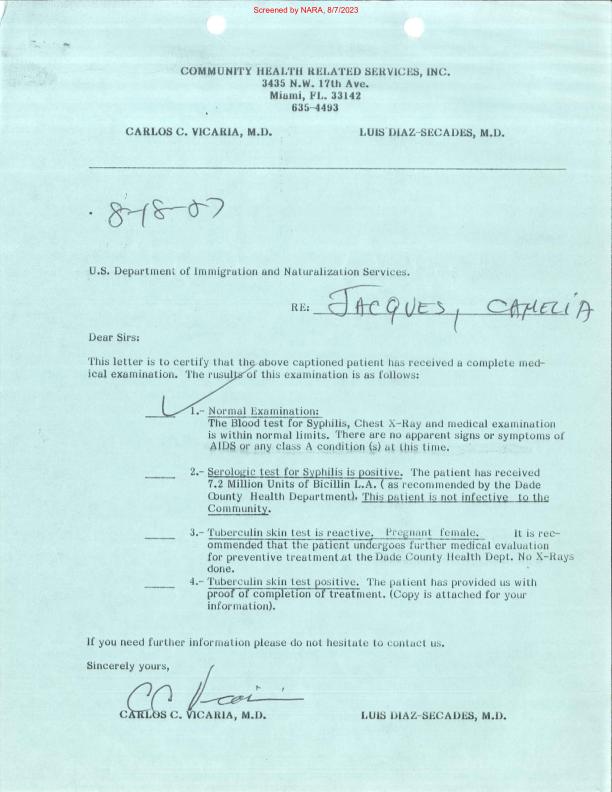 Screened by NARA, 8/7/2023
COMMUNITY HEALTH RELATED SERVICES, INC.
3435 N.W. 17th Ave.
Miami, FL. 33142
635-4493
CARLOS C. VICARIA, M.D. LUIS DIAZ-SECADES, M.D.
8-18-87
U.S. Department of Immigration and Naturalization Services.
RE: JACQUES, CAMELIA
Dear Sirs:
This letter is to certify that the above captioned patient has received a complete med-
ical examination. The rusults of this examination is as follows:
1.- Normal Examination:
The Blood test for Syphilis, Chest X-Ray and medical examination
is within normal limits. There are no apparent signs or symptoms of
AIDS or any class A condition (s) at this time.
2.- Serologic test for Syphilis is positive. The patient has received
7.2 Million Units of Bicillin L.A. ( as recommended by the Dade
County Health Department). This patient is not infective to the
Community.
3.- Tuberculin skin test is reactive. Pregnant female. It is rec-
ommended that the patient undergoes further medical evaluation
for preventive treatment at the Dade County Health Dept. No X-Rays
done.
4.- Tuberculin skin test positive. The patient has provided us with
proof of completion of treatment. (Copy is attached for your
information).
If you need further information please do not hesitate to contact us.
Sincerely yours,
CARLOS C. VICARIA, M.D. LUIS DIAZ-SECADES, M.D.